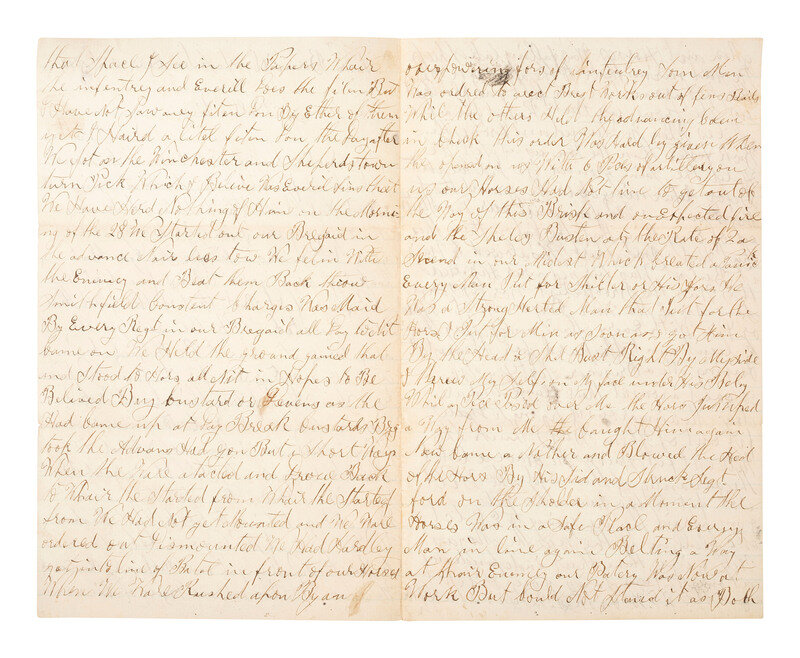 that Space I See in the Papers Whair
the infentrey and Everill Does the fiten But
I Have Not Saw aney fiten Don By Ether of them
yet I Haird a litel fiten Don the Day after
We got on the Winchester and Sheperdstown
turn Pick Which I Believe Was Everill Sins that
We Have Herd Nothing of Him on the Morni
ng of the 28 We Started out our Bregaid in
the advance Nair lees tow We fel in With
the Enemey and Beat them Back throw
Smithfield Constant Charges Was Maid
By Every Regt in our Bregaid all Day to Nit
Came on We Held the ground gained that
and Stood to Hors all Nit in Hopes to Be
Beleived By Custard or Devens as the
Had Came up at Day Break Custards Brg
took the Advans Had gon But a Short Ways
When the Ware atacked and Drove Back
to Whair the Started from Whair the Started
from We Had Not get Mounted and We Ware
ordered out Dismounted We Had Hardley
got into line of Batel in front of our Horses
When We Ware Rushed apon By an
over powering fors of infentrey Som Men
Was ordred to arect Brest Works out of fens Rails
While the others Held the advancing Colum
in Check this order Was Hardley given When
the opened on us With 6 Peas of artillery on
us our Horses Had Not time to get out of
the Way of this Brisk and on Expected fire
and the Sheles Busten at the Rate of 2 a
Secend in our Midest Which Created a Panic
Every Man Put for Shilter or His Hors He
Was a Strong Herted Man that Put for the
Hors I Put for Min as Soon as I got Him
By the Head a Shel Bust Right By My Side
I threw My Self on My face under His Bely
While Peases Pased over Me the Hors Jumped
a Way from Me I Caught Him again
Now Came a Nother and Blowed the Hed
of the Hors By His Sid and Struck Segt
ford on the Sholder in a Moment the
Horses Was in a Safe Place and Every
Man in line again Pelting a Way
at thair Enemey our Batery Was Now at
Work But Could Not Stand it as Both